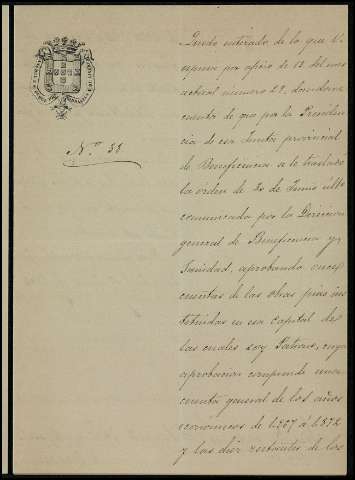 Nº 38
Quedo enterado de lo que V.
espone por oficio de 12 del mes
actual numero 29, dandome
cuenta de que por la Presiden-
cia de esa Junta provincial
de Beneficencia se le traslado
la orden de 30 de Junio ulto
comunicada por la Direccion
general de Beneficencia y
Sanidad, aprobando once
cuentas de las obras pias ins-
tituidas en esa capital de
las cuales soy Patrono, cuya
aprobacion comprende una
cuenta general de los años
economicos de 1867 á 1872
y las diez restantes de los